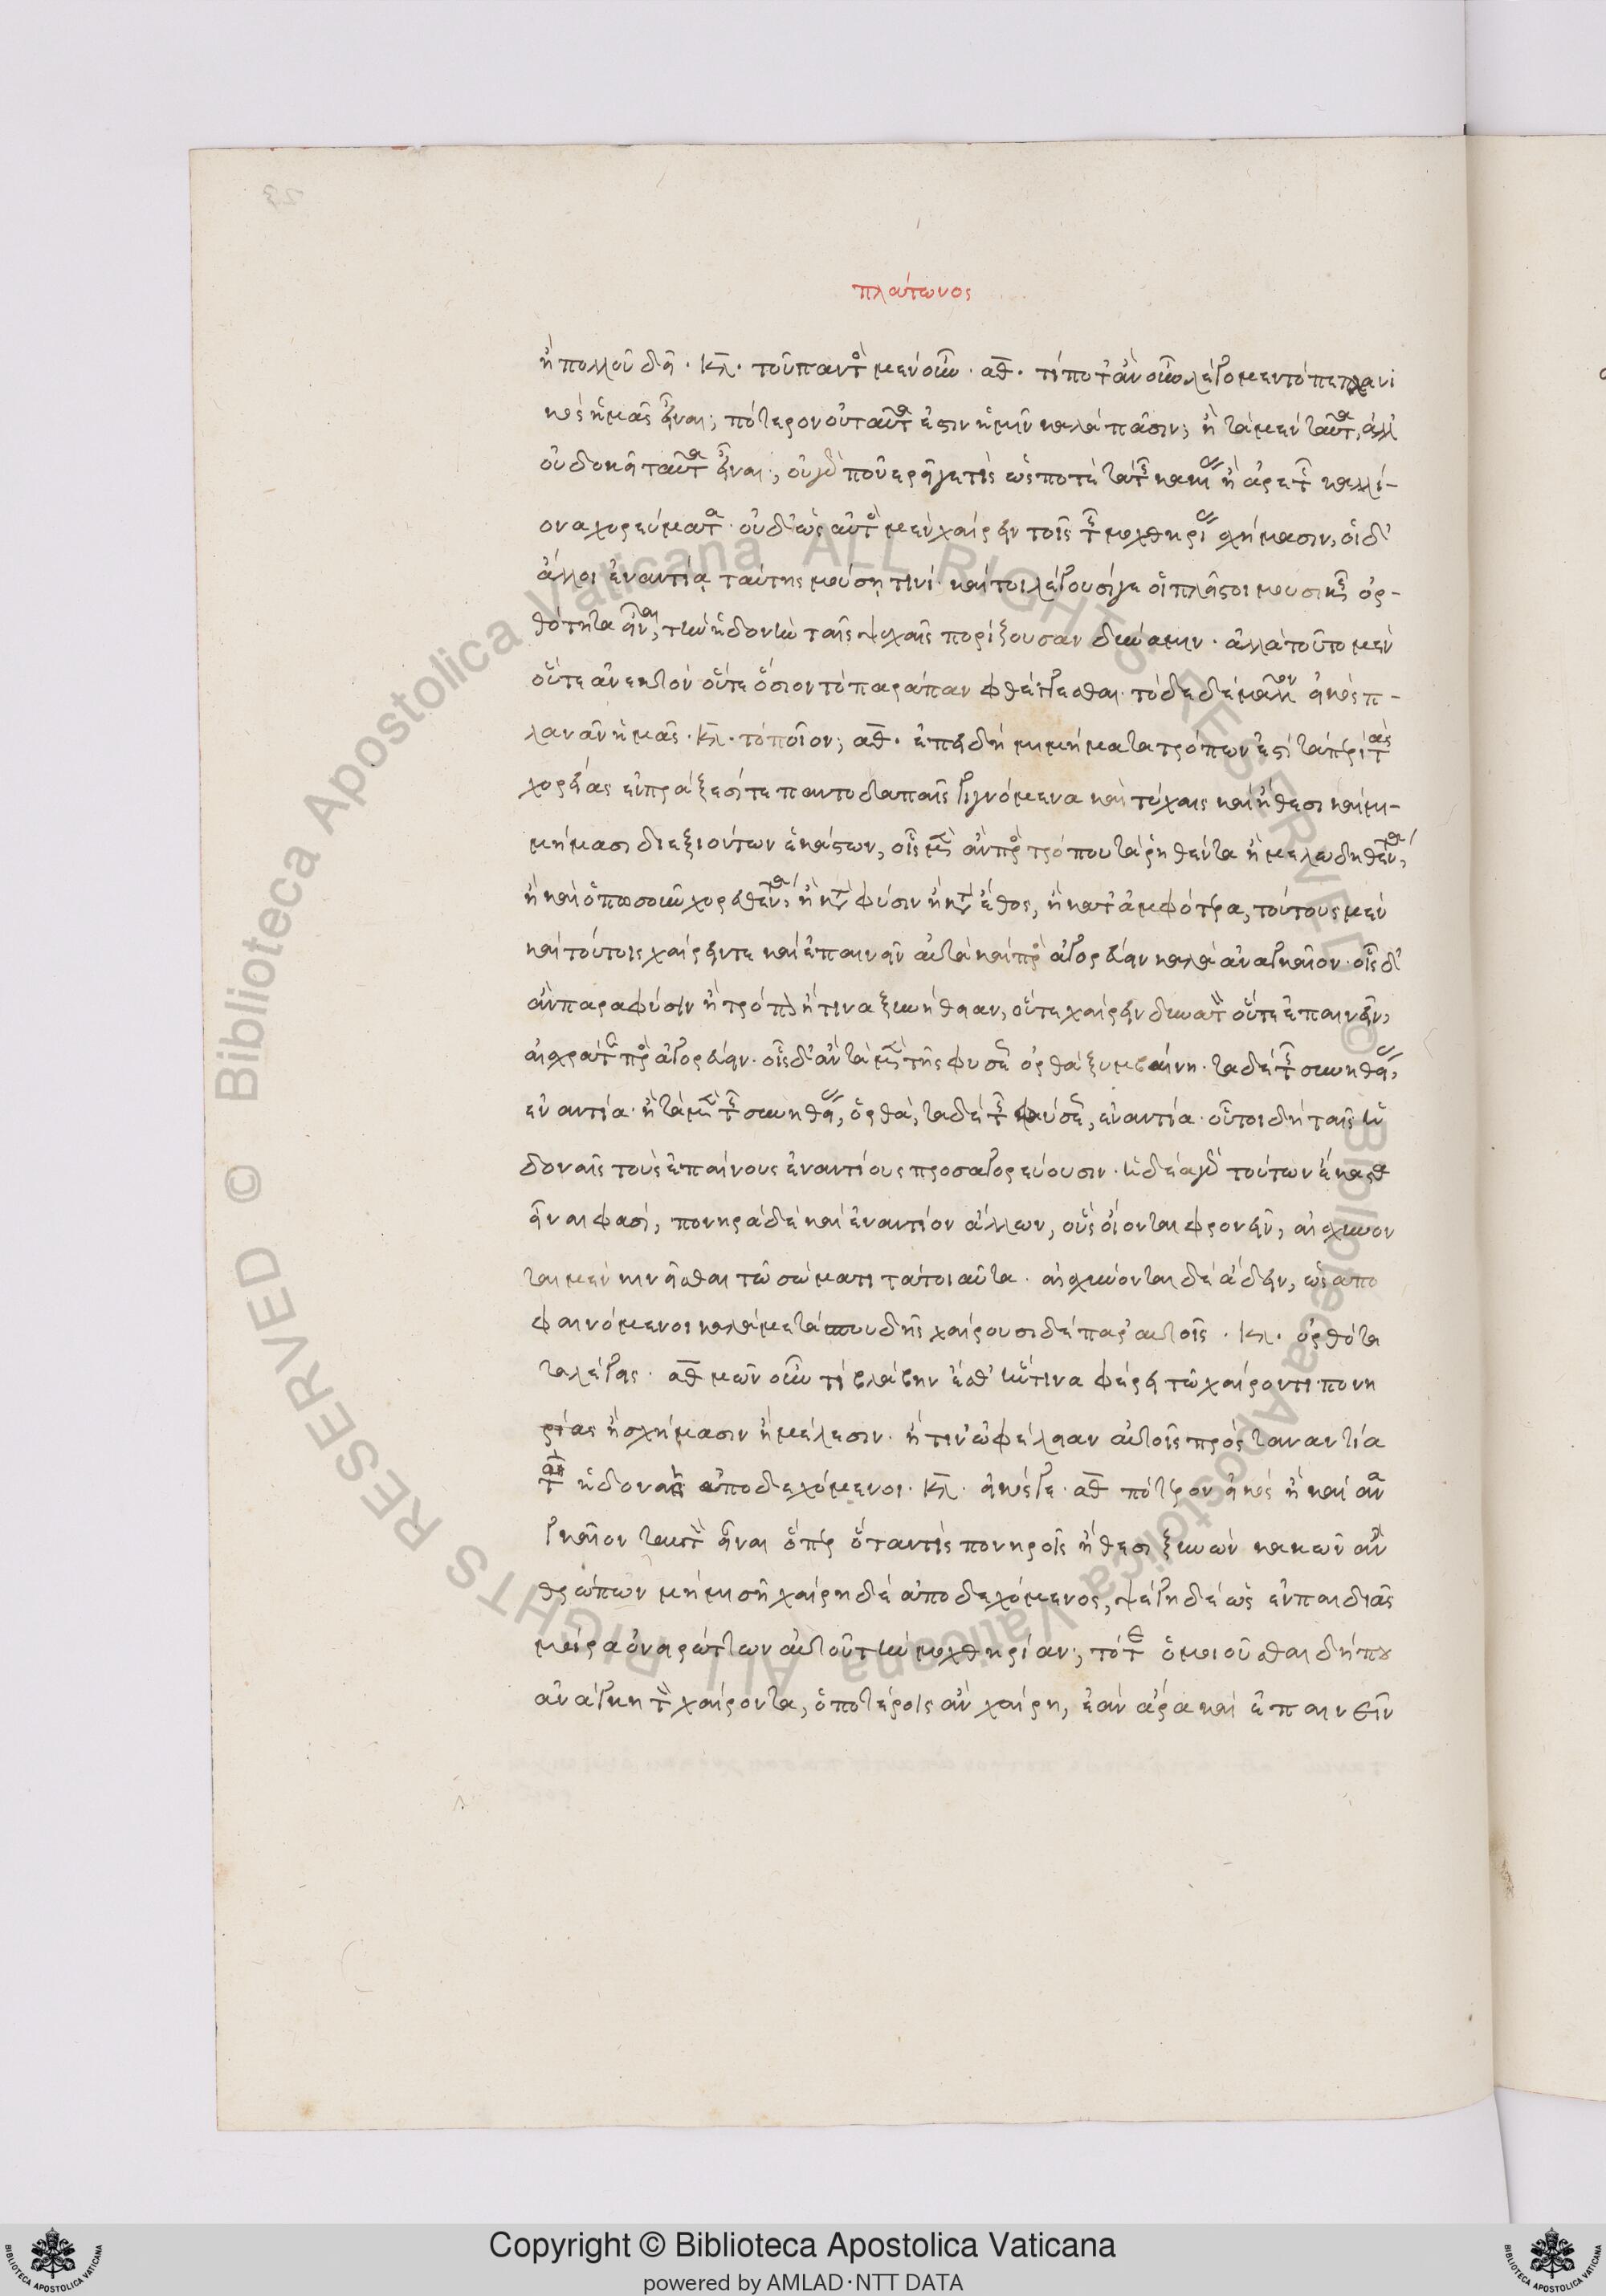 πλάτωνος
ἢ πολλοῦ δεῖ· κλ· τοῦ παντὸς μὲν οὖν· αθ· τί ποτ' ἂν οὖν λέγομεν τὸ πεπλανι
κὸς ἡμᾶς εἶναι; πότερον οὐ ταῦτά ἐστιν ἡμῖν καλὰ πᾶσιν; ἢ τὰ μὲν ταῦτα, ἀλλ'
οὐ δοκεῖ ταῦτα εἶναι; οὐ γάρ που ἐρεῖ γέ τις ὥς ποτε τὰ τῆς κακίας ἢ ἀρετῆς καλλί-
ονα χορεύματα· οὐδ' ὡς αὐτὸς μὲν χαίρειν τοῖς τῆς μοχθηρίας σχήμασιν, οἱ δ'
ἄλλοι ἐναντίᾳ ταύτης μούσῃ τινί· καίτοι λέγουσί γε οἱ πλεῖστοι μουσικῆς ὀρ-
θότητα εἶναι, τὴν ἡδονὴν ταῖς ψυχαῖς πορίζουσαν δύναμιν· ἀλλὰ τοῦτο μὲν
οὔτε ἀνεκτὸν οὔτε ὅσιον τὸ παράπαν φθέγγεσθαι· τὸ δὲ δὲ μᾶλλον εἰκὸς π-
λανᾶν ἡμᾶς· κλ· τὸ ποῖον; αθ· ἐπειδὴ μιμήματα τρόπων ἐστὶ τὰ περὶ τὰς
χορείας ἐν πράξεσί τε παντοδαπαῖς γιγνόμενα καὶ τύχαις καὶ ἤθεσι καὶ μι-
μήμασι διεξιόντων ἑκάστων, οἷς μὲν ἂν πρὸς τρόπου τὰ ῥηθέντα ἢ μελωδηθέντα,
ἢ καὶ ὁπωσοῦν χορευθέντα, ἢ κατὰ φύσιν ἢ κατὰ ἔθος, ἢ κατ' ἀμφότερα, τούτους μὲν
καὶ τούτοις χαίρειν τε καὶ ἐπαινεῖν αὐτὰ καὶ προσαγορεύειν καλὰ ἀναγκαῖον· οἷς δ'
ἂν παρὰ φύσιν ἢ τρόπον ἤ τινα ξυνήθειαν, οὔτε χαίρειν δυνατὸν οὔτε ἐπαινεῖν,
αἰσχρά τε προσαγορεύειν· οἷς δ' ἂν τὰ μὲν τῆς φύσεως ὀρθὰ ξυμβαίνῃ· τὰ δὲ τῆς συνηθείας,
ἐναντία· ἢ τὰ μὲν τῆς συνηθείας, ὀρθά, τὰ δὲ τῆς φύσεως, ἐναντία· οὗτοι δὴ ταῖς ἡ
δοναῖς τοὺς ἐπαίνους ἐναντίους προσαγορεύουσιν· ἡδέα γὰρ τούτων ἕκαστα
εἶναι φασί, πονηρὰ δὲ καὶ ἐναντίον ἄλλων, οὓς οἴονται φρονεῖν, αἰσχύνον
ται μὲν κινεῖσθαι τῷ σώματι τὰ τοιαῦτα· αἰσχύνονται δὲ ᾄδειν, ὡς ἀπο
φαινόμενοι καλὰ μετὰ σπουδῆς χαίρουσι δὲ παρ' αὐτοῖς· κλ· ὀρθότα
τα λέγεις· αθ μῶν οὖν τι βλάβην ἔσθ' ἥντινα φέρει τῷ χαίροντι πονη
ρίας ἢ σχήμασιν ἢ μέλεσιν· ἤ τιν' ὠφέλειαν αὐτοῖς πρὸς τἀναντία
τὰς ἡδονὰς ἀποδεχόμενοι· κλ· εἰκός γε· αθ πότερον εἰκὸς ἢ καὶ ἀνα
γκαῖον ταυτὸν εἶναι ὅπερ ὅταν τις πονηροῖς ἤθεσι ξυνὼν κακῶν ἀν
θρώπων μὴ μισῇ χαίρῃ δὲ ἀποδεχόμενος, ψέγῃ δὲ ὡς ἐν παιδιᾶς
μοίρᾳ ὀνειρώττων αὐτοῦ τὴν μοχθηρίαν; τότε ὁμοιοῦσθαι δήπου
ἀνάγκη τὸν χαίροντα, ὁποτέροις ἂν χαίρῃ, ἐὰν ἄρα καὶ ἐπαινεῖν
© Biblioteca Apostolica Vaticana ALL RIGHTS RESERVED
Copyright © Biblioteca Apostolica Vaticana
powered by AMLAD·NTT DATA